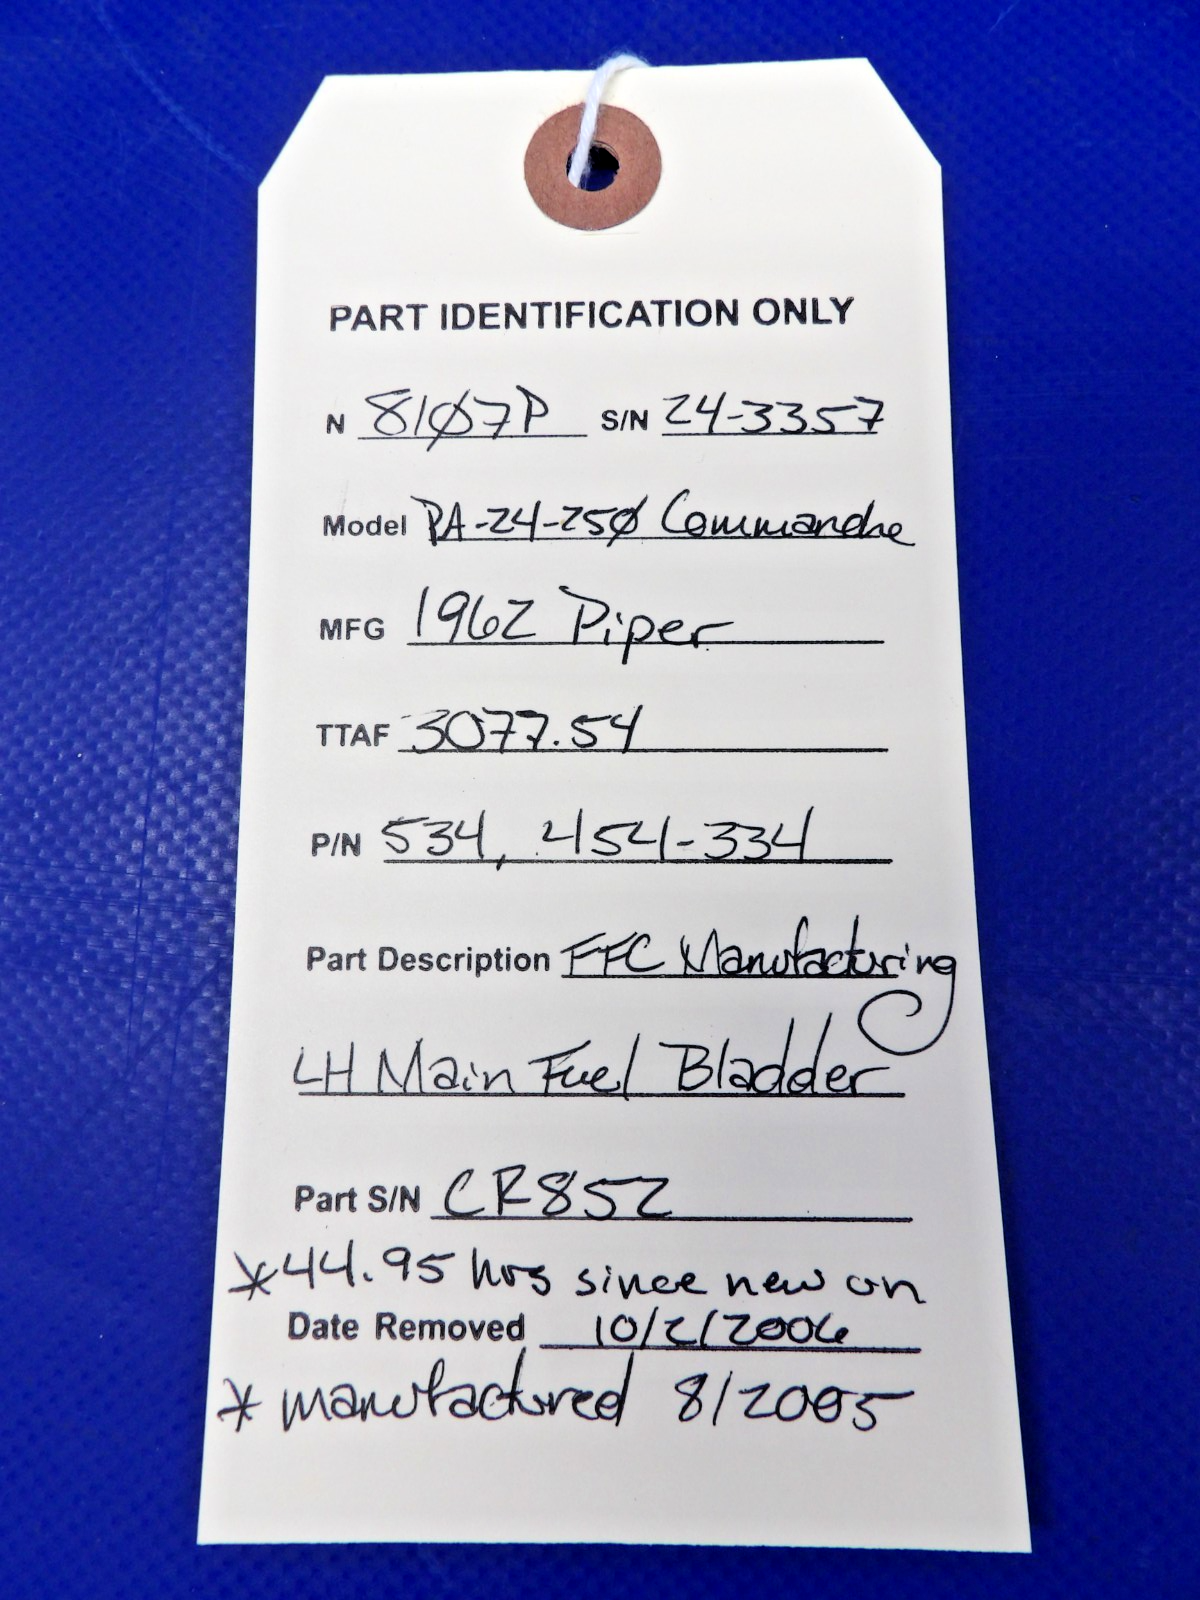 PART IDENTIFICATION ONLY
N 8107P S/N 24-3357
Model PA-24-250 Commanche
MFG 1962 Piper
TTAF 3077.54
P/N 534, 454-334
Part Description FFC Manufacturing
LH Main Fuel Bladder
Part S/N CR852
*44.95 hrs since new on
Date Removed 10/2/2006
* manufactured 8/2005